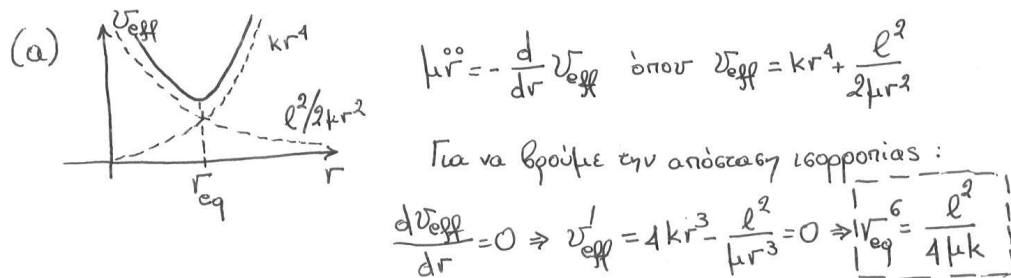 (a)
U_eff
kr⁴
ℓ²/2μr²
r
r_eq
μr̈ = - d/dr U_eff όπου U_eff = kr⁴ + ℓ²/2μr²
Για να βρούμε την απόσταση ισορροπίας :
dU_eff/dr = 0 ⇒ U'_eff = 4kr³ - ℓ²/μr³ = 0 ⇒ r_eq⁶ = ℓ²/4μk